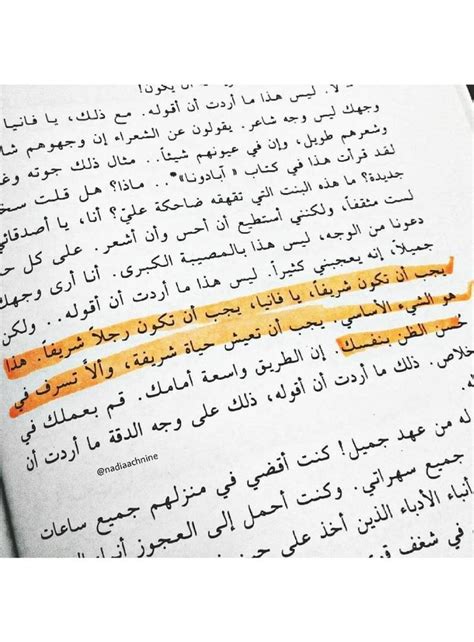 أن يكون!
لا. ليس هذا ما أردت أن أقوله. مع ذلك، يا فانيا
وجهك ليس وجه شاعر. يقولون عن الشعراء إن وجوههم
وشعرهم طويل، وإن في عيونهم شيئاً.. مثال ذلك جوته
لقد قرأت هذا في كتاب « آبادونا»*.. ماذا؟ هل قلت
جديدة؟ ما هذه البنت التي تقهقه ضاحكة عليّ؟ أنا، يا أصدقائي
لست مثقفاً، ولكنني أستطيع أن أحس وأن أشعر. على كل
دعونا من الوجه، ليس هذا بالمصيبة الكبرى. أنا أرى وجهك
جميلاً، إنه يعجبني كثيراً. ليس هذا ما أردت أن أقوله.. ولكن
يجب أن تكون شريفاً، يا فانيا، يجب أن تكون رجلاً شريفاً. هذا
هو الشيء الأساسي. يجب أن تعيش حياة شريفة، وألاّ تسرف في
حسن الظن بنفسك. إن الطريق واسعة أمامك. قم بعملك في
ذلك ما أردت أن أقوله، ذلك على وجه الدقة ما أردت أن
@nadiaachnine
له من عهد جميل! كنت أقضي في منزلهم جميع ساعات
جميع سهراتي. وكنت أحمل إلى العجوز
أنباء الأدباء الذين أخذ على
في شغف